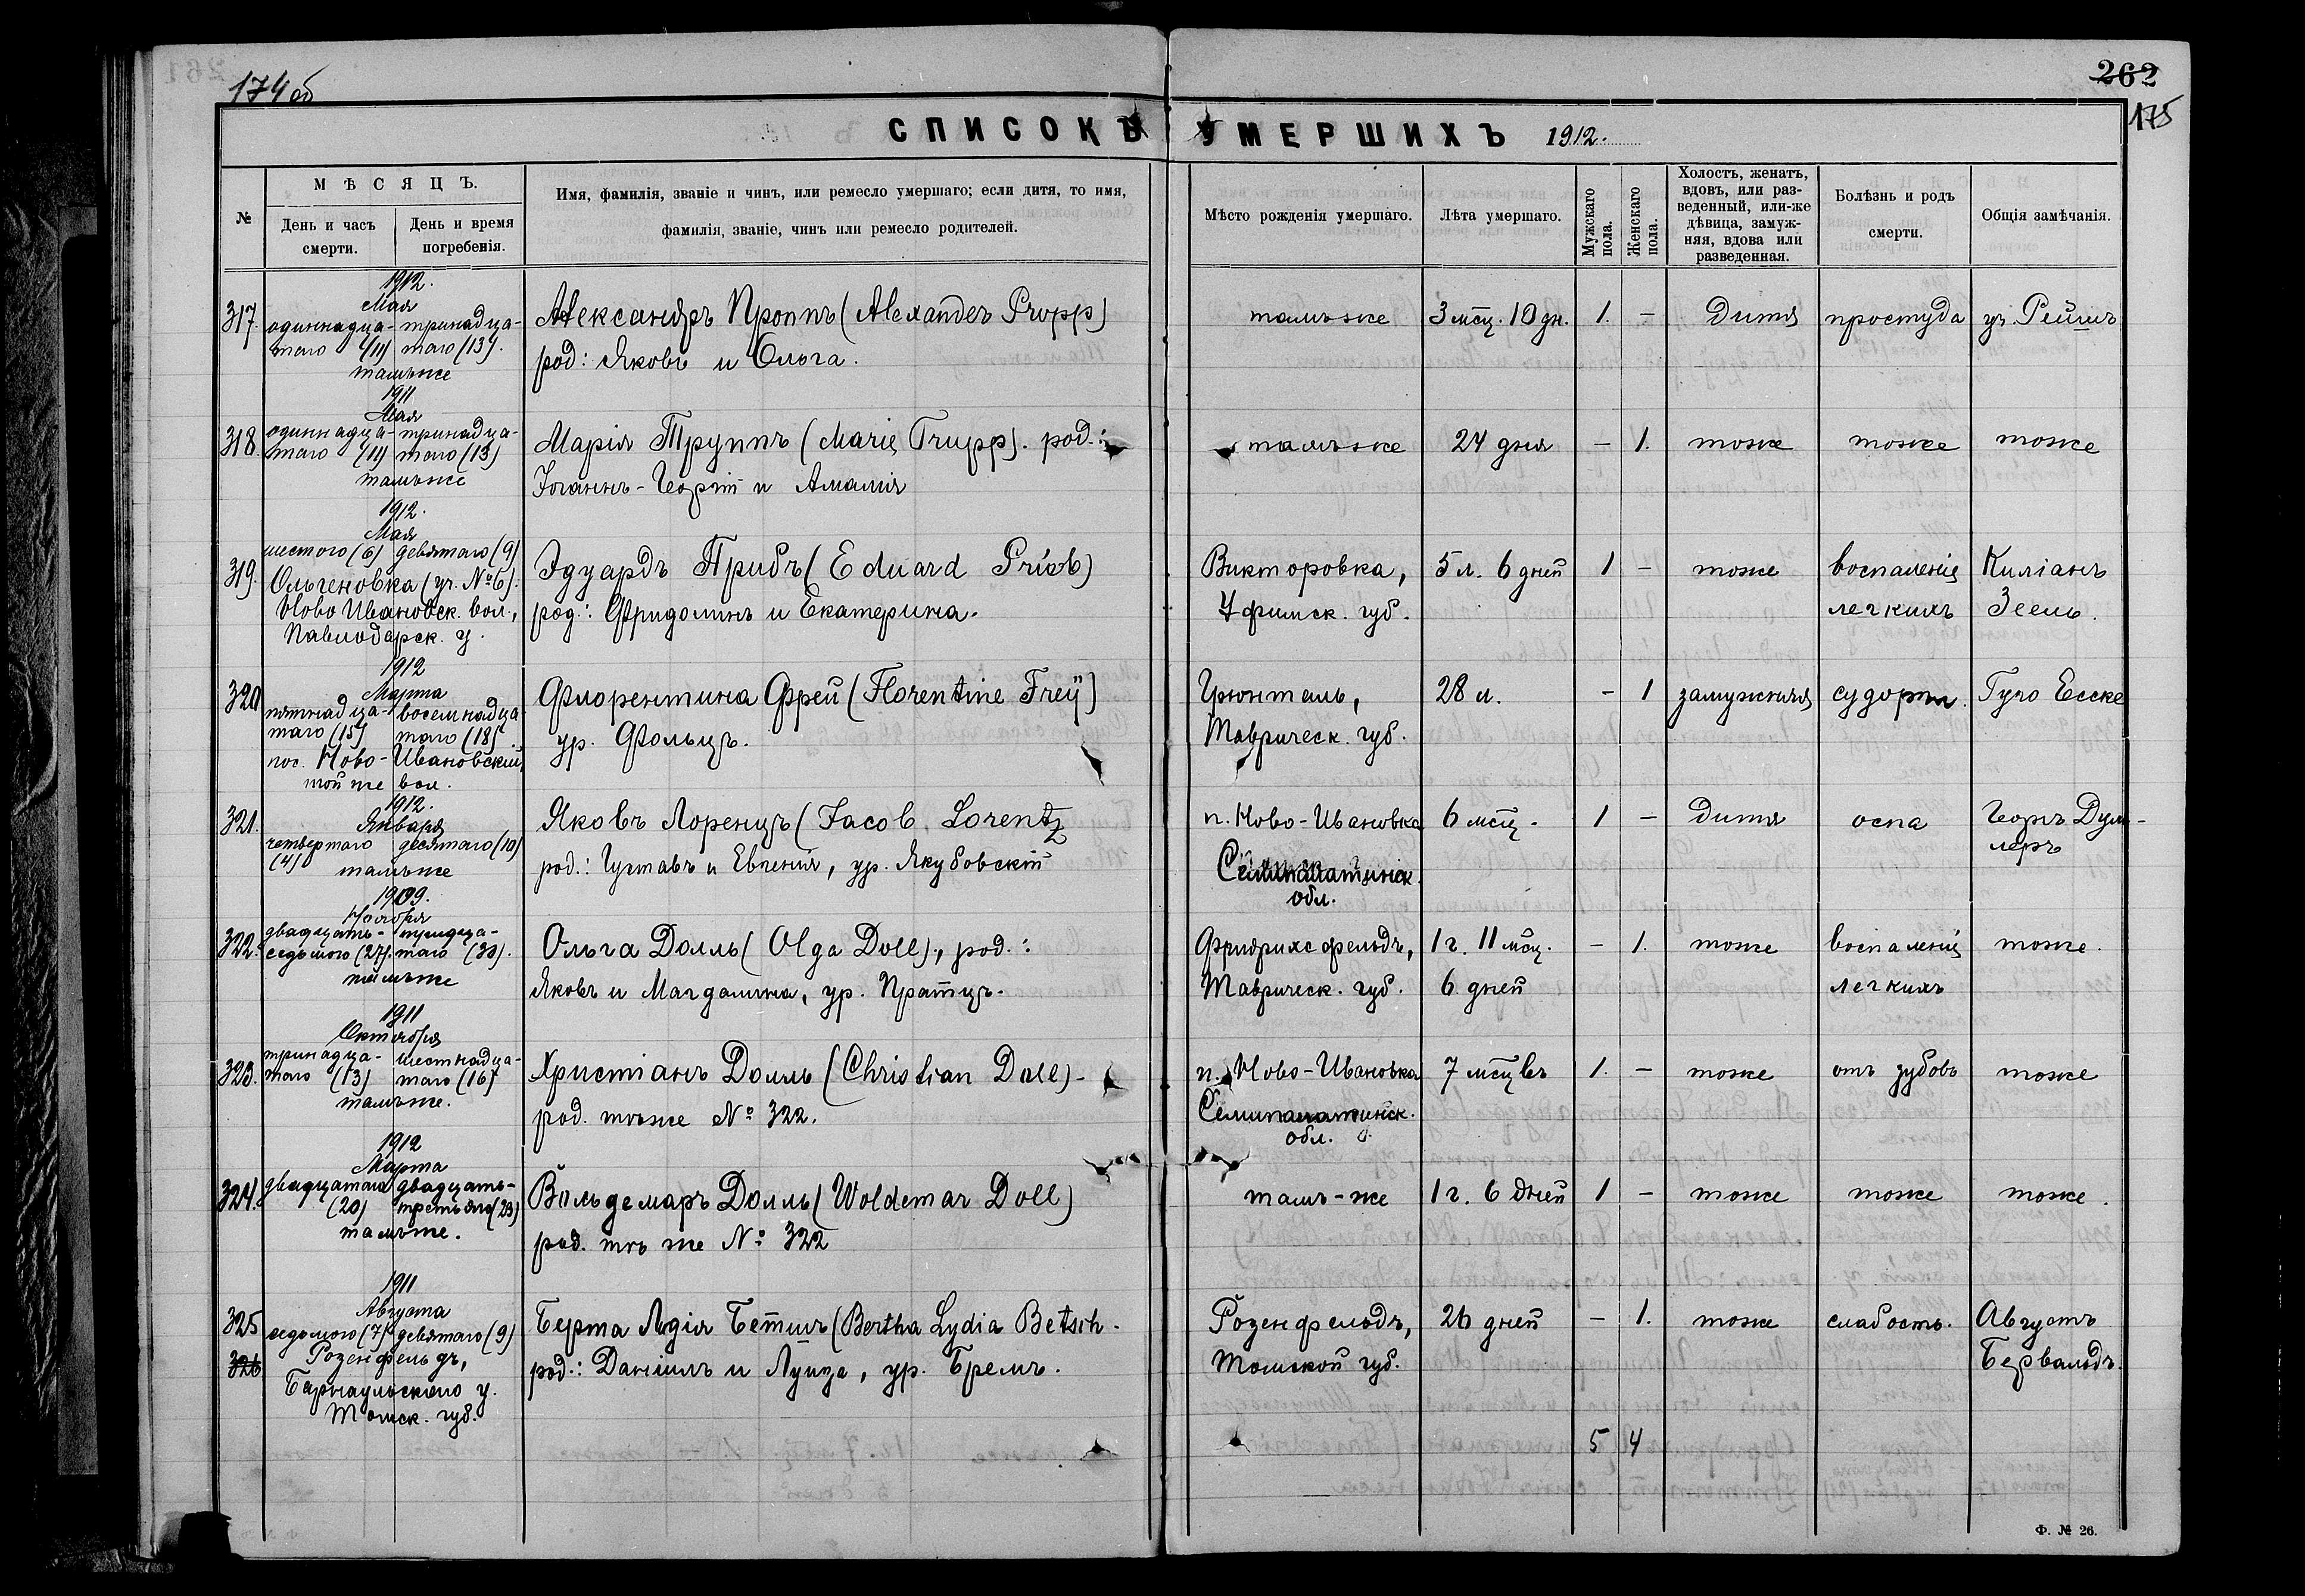 174об
262
175
СПИСОКЪ УМЕРШИХЪ 1912.
№
МѢСЯЦЪ.
День и часъ смерти.
День и время погребенія.
Имя, фамилія, званіе и чинъ, или ремесло умершаго; если дитя, то имя,
фамилія, званіе, чинъ или ремесло родителей.
Мѣсто рожденія умершаго.
Лѣта умершаго.
Мужскаго пола.
Женскаго пола.
Холостъ, женатъ,
вдовъ, или раз-
веденный, или-же
дѣвица, замуж-
няя, вдова или
разведенная.
Болѣзнь и родъ
смерти.
Общія замѣчанія.
317.
1912.
Мая
одиннадца- тринадца-
таго (11) таго (13).
тамъже
Александръ Проппъ (Alexander Propp)
род: Яковъ и Ольга.
тамъ-же
3 мсц. 10 дн.
1.
–
Дитя
простуда
уч. Рейшъ
318
1911
Мая
одиннадца- тринадца-
таго (11) таго (13)
тамъже
Марія Труппъ (Marie Trupp). род.:
Іоганнъ-Георгъ и Амалія
тамъ-же
24 дня
–
1.
тоже
тоже
тоже
319.
1912.
Мая
шестого (6) девятаго (9)
Ольгеновка (уч. № 6).
Ново Ивановск. вол.,
Павлодарск. у.
Эдуардъ Прибъ (Eduard Prieb)
род.: Фридолинъ и Екатерина.
Викторовка,
Уфимск. губ.
5 л. 6 дней
1
–
тоже
воспаленія
легкихъ
Киліанъ
Зеель.
320
1912
Марта
пятнадца- восемнадца-
таго (15) таго (18).
пос. Ново-Ивановскій,
той же вол.
Флорентина Фрей (Florentine Frey)
ур. Фольцъ.
Грюнталь,
Таврическ. губ.
28 л.
–
1
замужняя
судорги.
Гуго Еске
321.
1912.
Января
четвертаго десятаго (10)
(4)
тамъже
Яковъ Лоренцъ (Jacob Lorentz
род.: Густавъ и Евгенія, ур. Якубовскій
п. Ново-Ивановка
Семипалатинск.
обл.
6 мсц.
1
–
Дитя
оспа
Георгъ Дум-
леръ
322.
1909.
Ноября
двадцать- тридца-
седьмого (27). таго (30).
тамъже
Ольга Долль (Olga Doll), род.:
Яковъ и Магдалина, ур. Пратцъ.
Фридрихсфельдъ,
Таврическ. губ.
1 г. 11 мсц.
6 дней
–
1.
тоже
воспаленія
легкихъ
тоже.
323.
1911
Октября
тринадца- шестнадца-
таго (13) таго (16)
тамъже.
Христіанъ Долль (Christian Doll)-
род. тѣже № 322.
п. Ново-Ивановка
Семипалатинск.
обл.
7 мсцвъ
1.
–
тоже
отъ зубовъ
тоже
324.
1912
Марта
двадцатаго двадцать-
(20) третьяго (23)
тамъже.
Вольдемаръ Долль (Woldemar Doll)
род. тѣ же № 322
тамъ-же
1 г. 6 дней
1
–
тоже
тоже
тоже.
325
326
1911
Августа
седьмого (7) девятаго (9)
Розенфельдъ,
Барнаульскаго у.
Томск. губ.
Берта Лидія Бетшъ (Bertha Lydia Betsch.
род.: Даніилъ и Луиза, ур. Бремъ.
Розенфельдъ,
Томской губ.
26 дней
–
1.
тоже
слабость.
Августъ
Бервальдъ.
5 4
Ф. № 26.